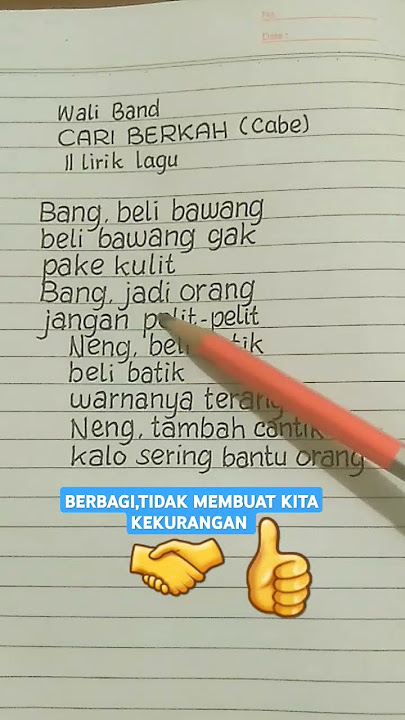 No.
Date :
Wali Band
CARI BERKAH (Cabe)
|| lirik lagu
Bang, beli bawang
beli bawang gak
pake kulit
Bang, jadi orang
jangan pelit-pelit
Neng, beli batik
beli batik
warnanya terang
Neng, tambah cantik
kalo sering bantu orang
BERBAGI,TIDAK MEMBUAT KITA
KEKURANGAN